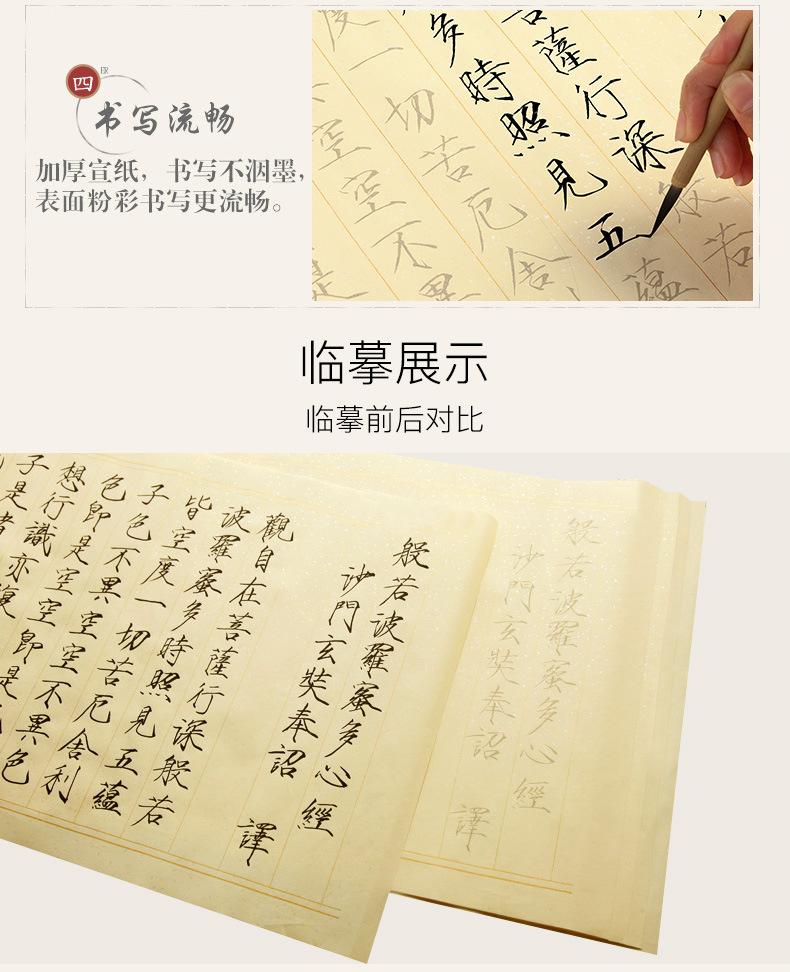 四
ER
书写流畅
加厚宣纸，书写不洇墨，
表面粉彩书写更流畅。
菩薩行深般若
多時照見五蘊
度一切苦厄舍
空空不異
是
临摹展示
临摹前后对比
般若波羅蜜多心經
沙門玄奘奉詔 譯
觀自在菩薩行深般若
波羅蜜多時照見五蘊
皆空度一切苦厄舍利
子色不異空空不異色
色即是空空即是
想行識亦復
子是諸
般若波羅蜜多心經
沙門玄奘奉詔 譯